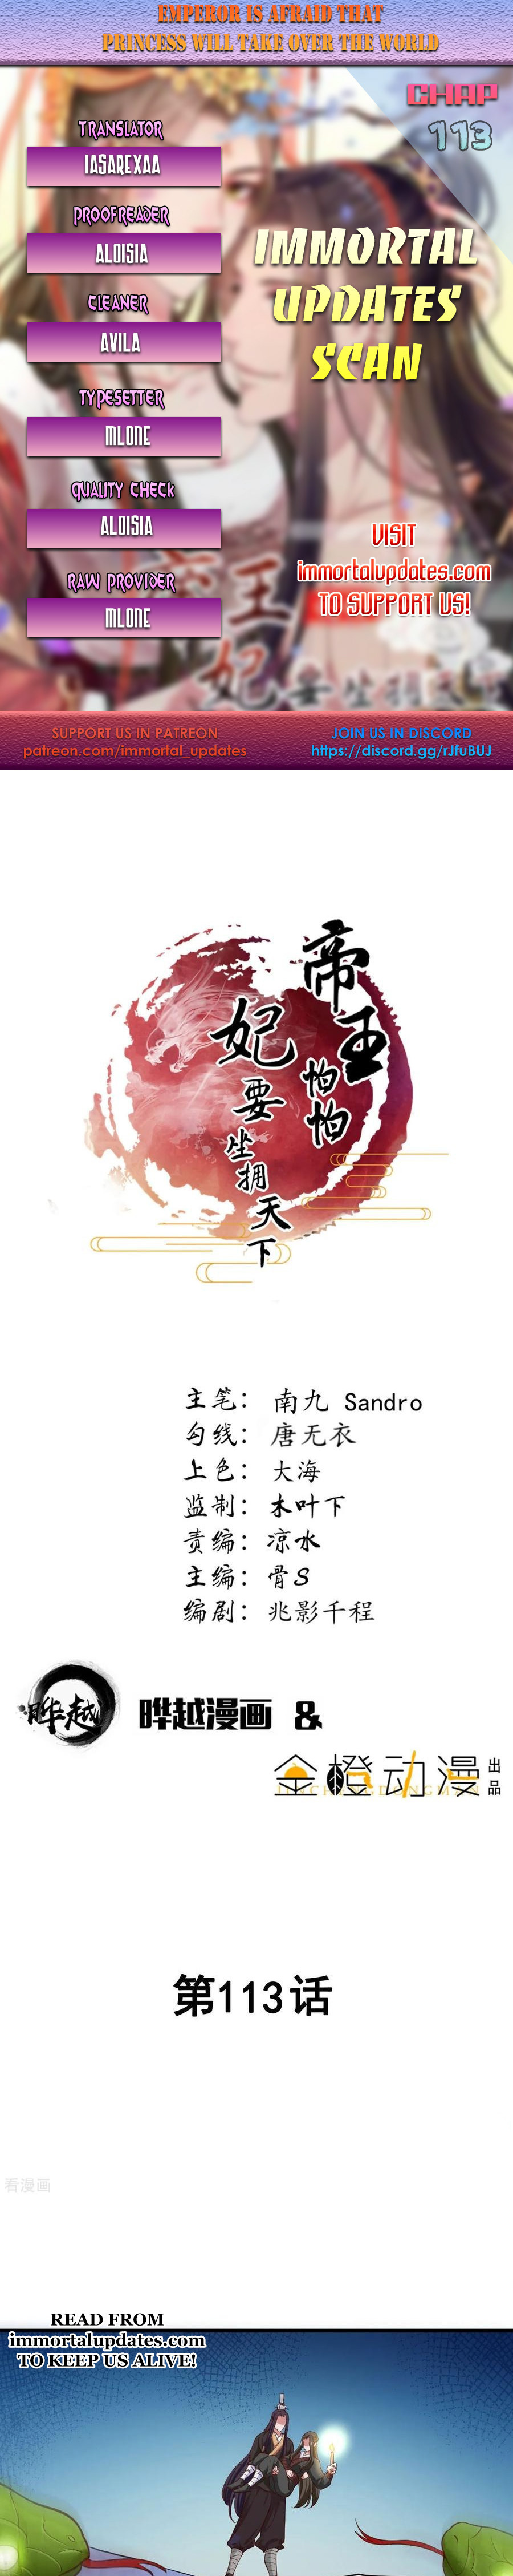 EMPEROR IS AFRAID THAT
PRINCESS WILL TAKE OVER THE WORLD
CHAP
113
TRANSLATOR
IASAREXAA
PROOFREADER
ALOISIA
CLEANER
AVILA
TYPESETTER
MLONE
QUALITY CHECK
ALOISIA
RAW PROVIDER
MLONE
IMMORTAL
UPDATES
SCAN
VISIT
immortalupdates.com
TO SUPPORT US!
王妃要坐拥天下
SUPPORT US IN PATREON
patreon.com/immortal_updates
JOIN US IN DISCORD
https://discord.gg/rJfuBUJ
帝王怕怕
妃要坐拥天下
主笔：南九 Sandro
勾线：唐无衣
上色：大海
监制：木叶下
责编：凉水
主编：骨S
编剧：兆影千程
晔越
晔越漫画 &
金橙动漫 出品
JINCHENGDONGMAN
第113话
看漫画
READ FROM
immortalupdates.com
TO KEEP US ALIVE!